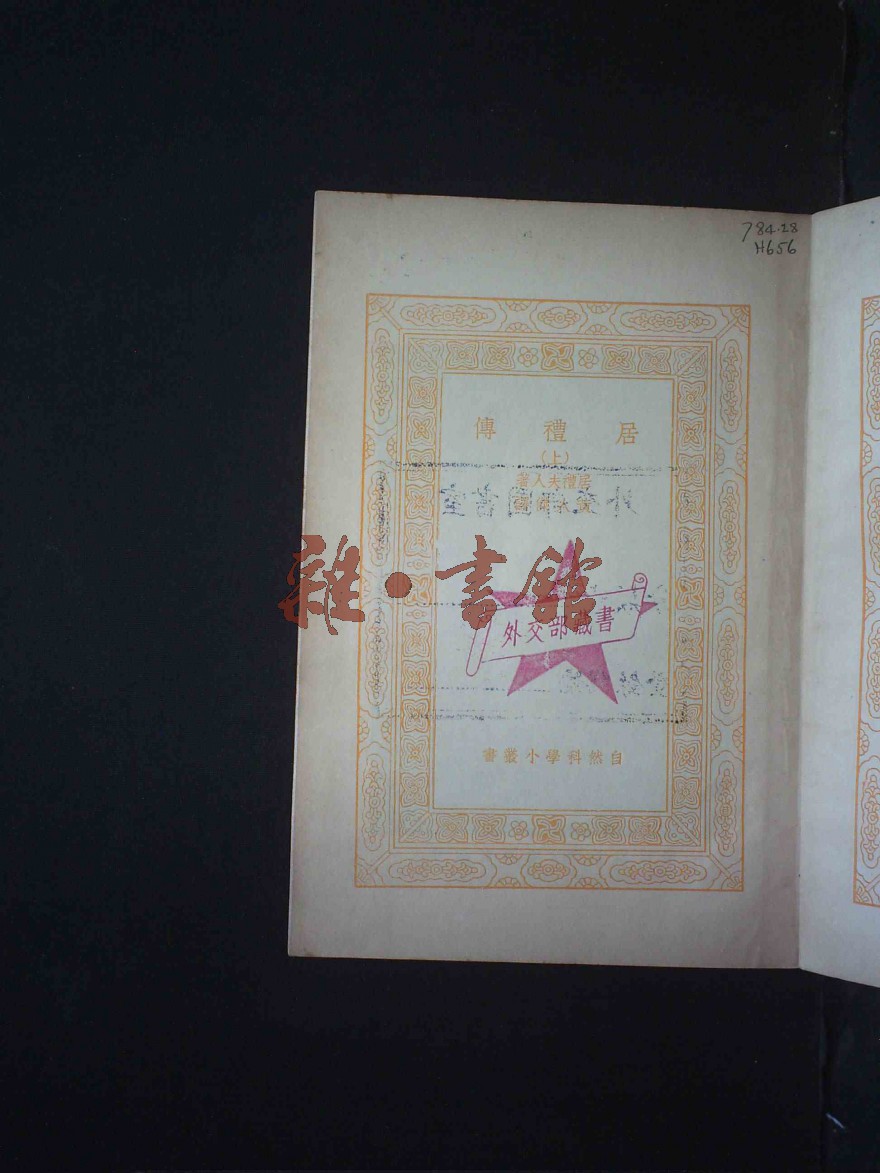 784.28
H656
居禮傳
(上)
居禮夫人著
雜·書館
外交部藏書
自然科學小叢書